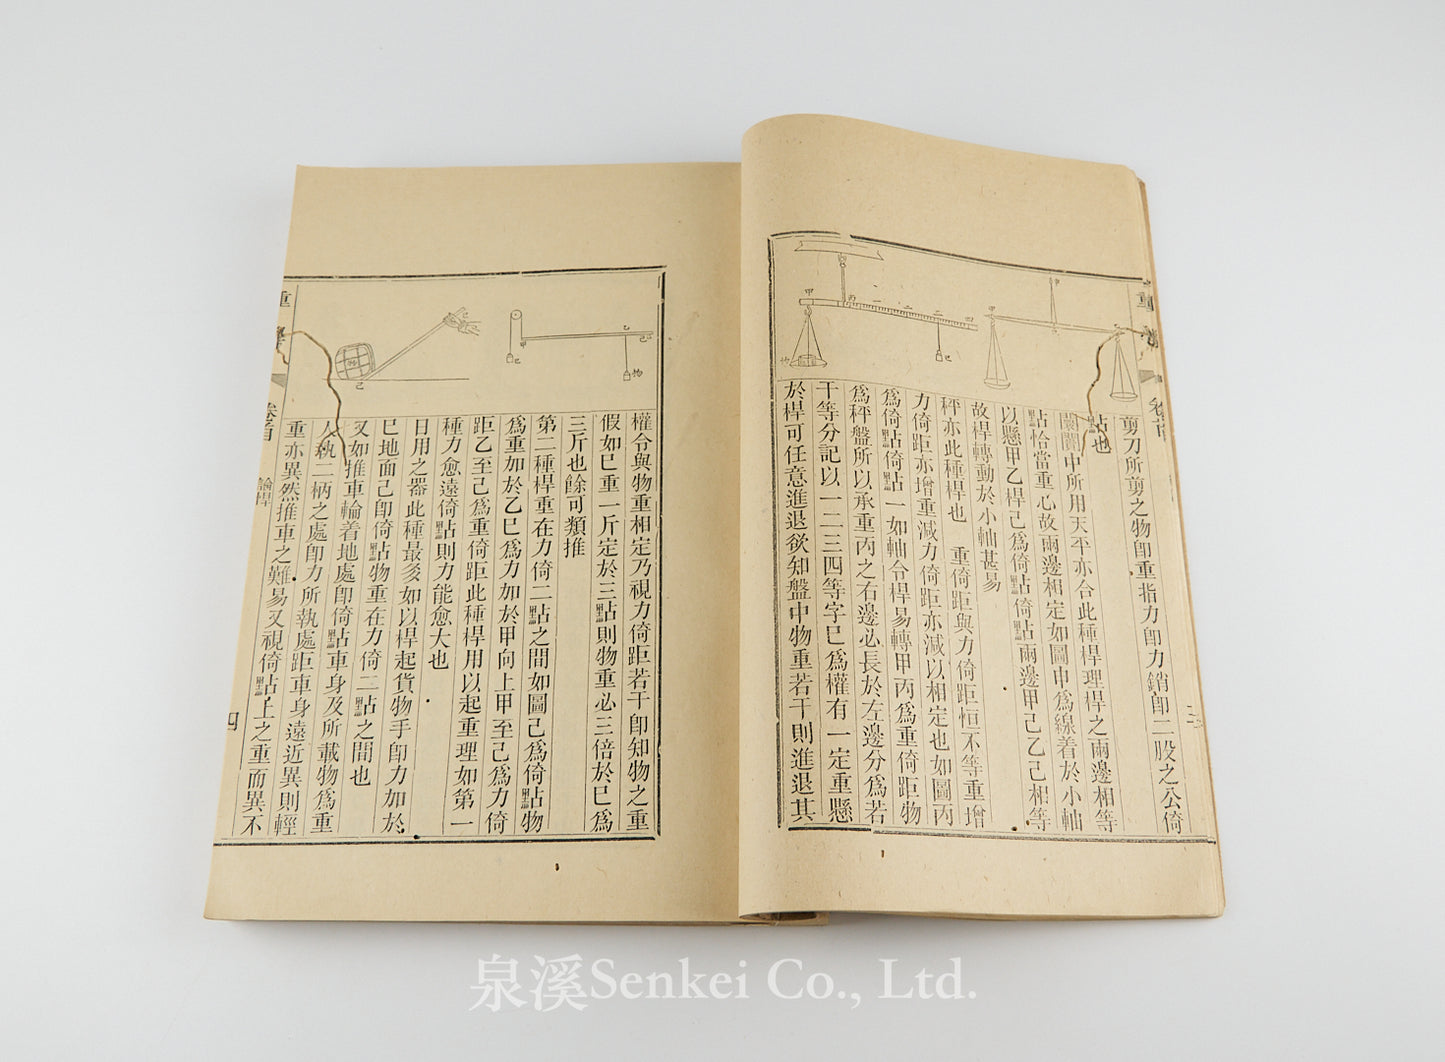 剪刀所剪之物即重指力即力銷即二股之公倚
點也
闤闠中所用天平亦合此種桿理桿之兩邊相等
點恰當重心故兩邊相定如圖中爲線着於小軸
以懸甲乙桿己爲倚點倚點兩邊甲己乙己相等
故桿轉動於小軸甚易
秤亦此種桿也 重倚距與力倚距恒不等重增
力倚距亦增重減力倚距亦減以相定也如圖丙
爲倚點倚點一如軸令桿易轉甲丙爲重倚距物
爲秤盤所以承重丙之右邊必長於左邊分爲若
干等分記以一二三四等字巳爲權有一定重懸
於桿可任意進退欲知盤中物重若干則進退其
權令與物重相定乃視力倚距若干即知物之重
假如巳重一斤定於三點則物重必三倍於巳爲
三斤也餘可類推
第二種桿重在力倚二點之間如圖己爲倚點物
爲重加於乙巳爲力加於甲向上甲至己爲力倚
距乙至己爲重倚距此種桿用以起重理如第一
種力愈遠倚點則力能愈大也
日用之器此種最多如以桿起貨物手即力加於
巳地面己即倚點物重在力倚二點之間也
又如推車輪着地處即倚點車身及所載物爲重
人執二柄之處即力所執處距車身遠近異則輕
重亦異然推車之難易又視倚點上之重而異不
重學
卷首
論桿
四
泉溪Senkei Co., Ltd.